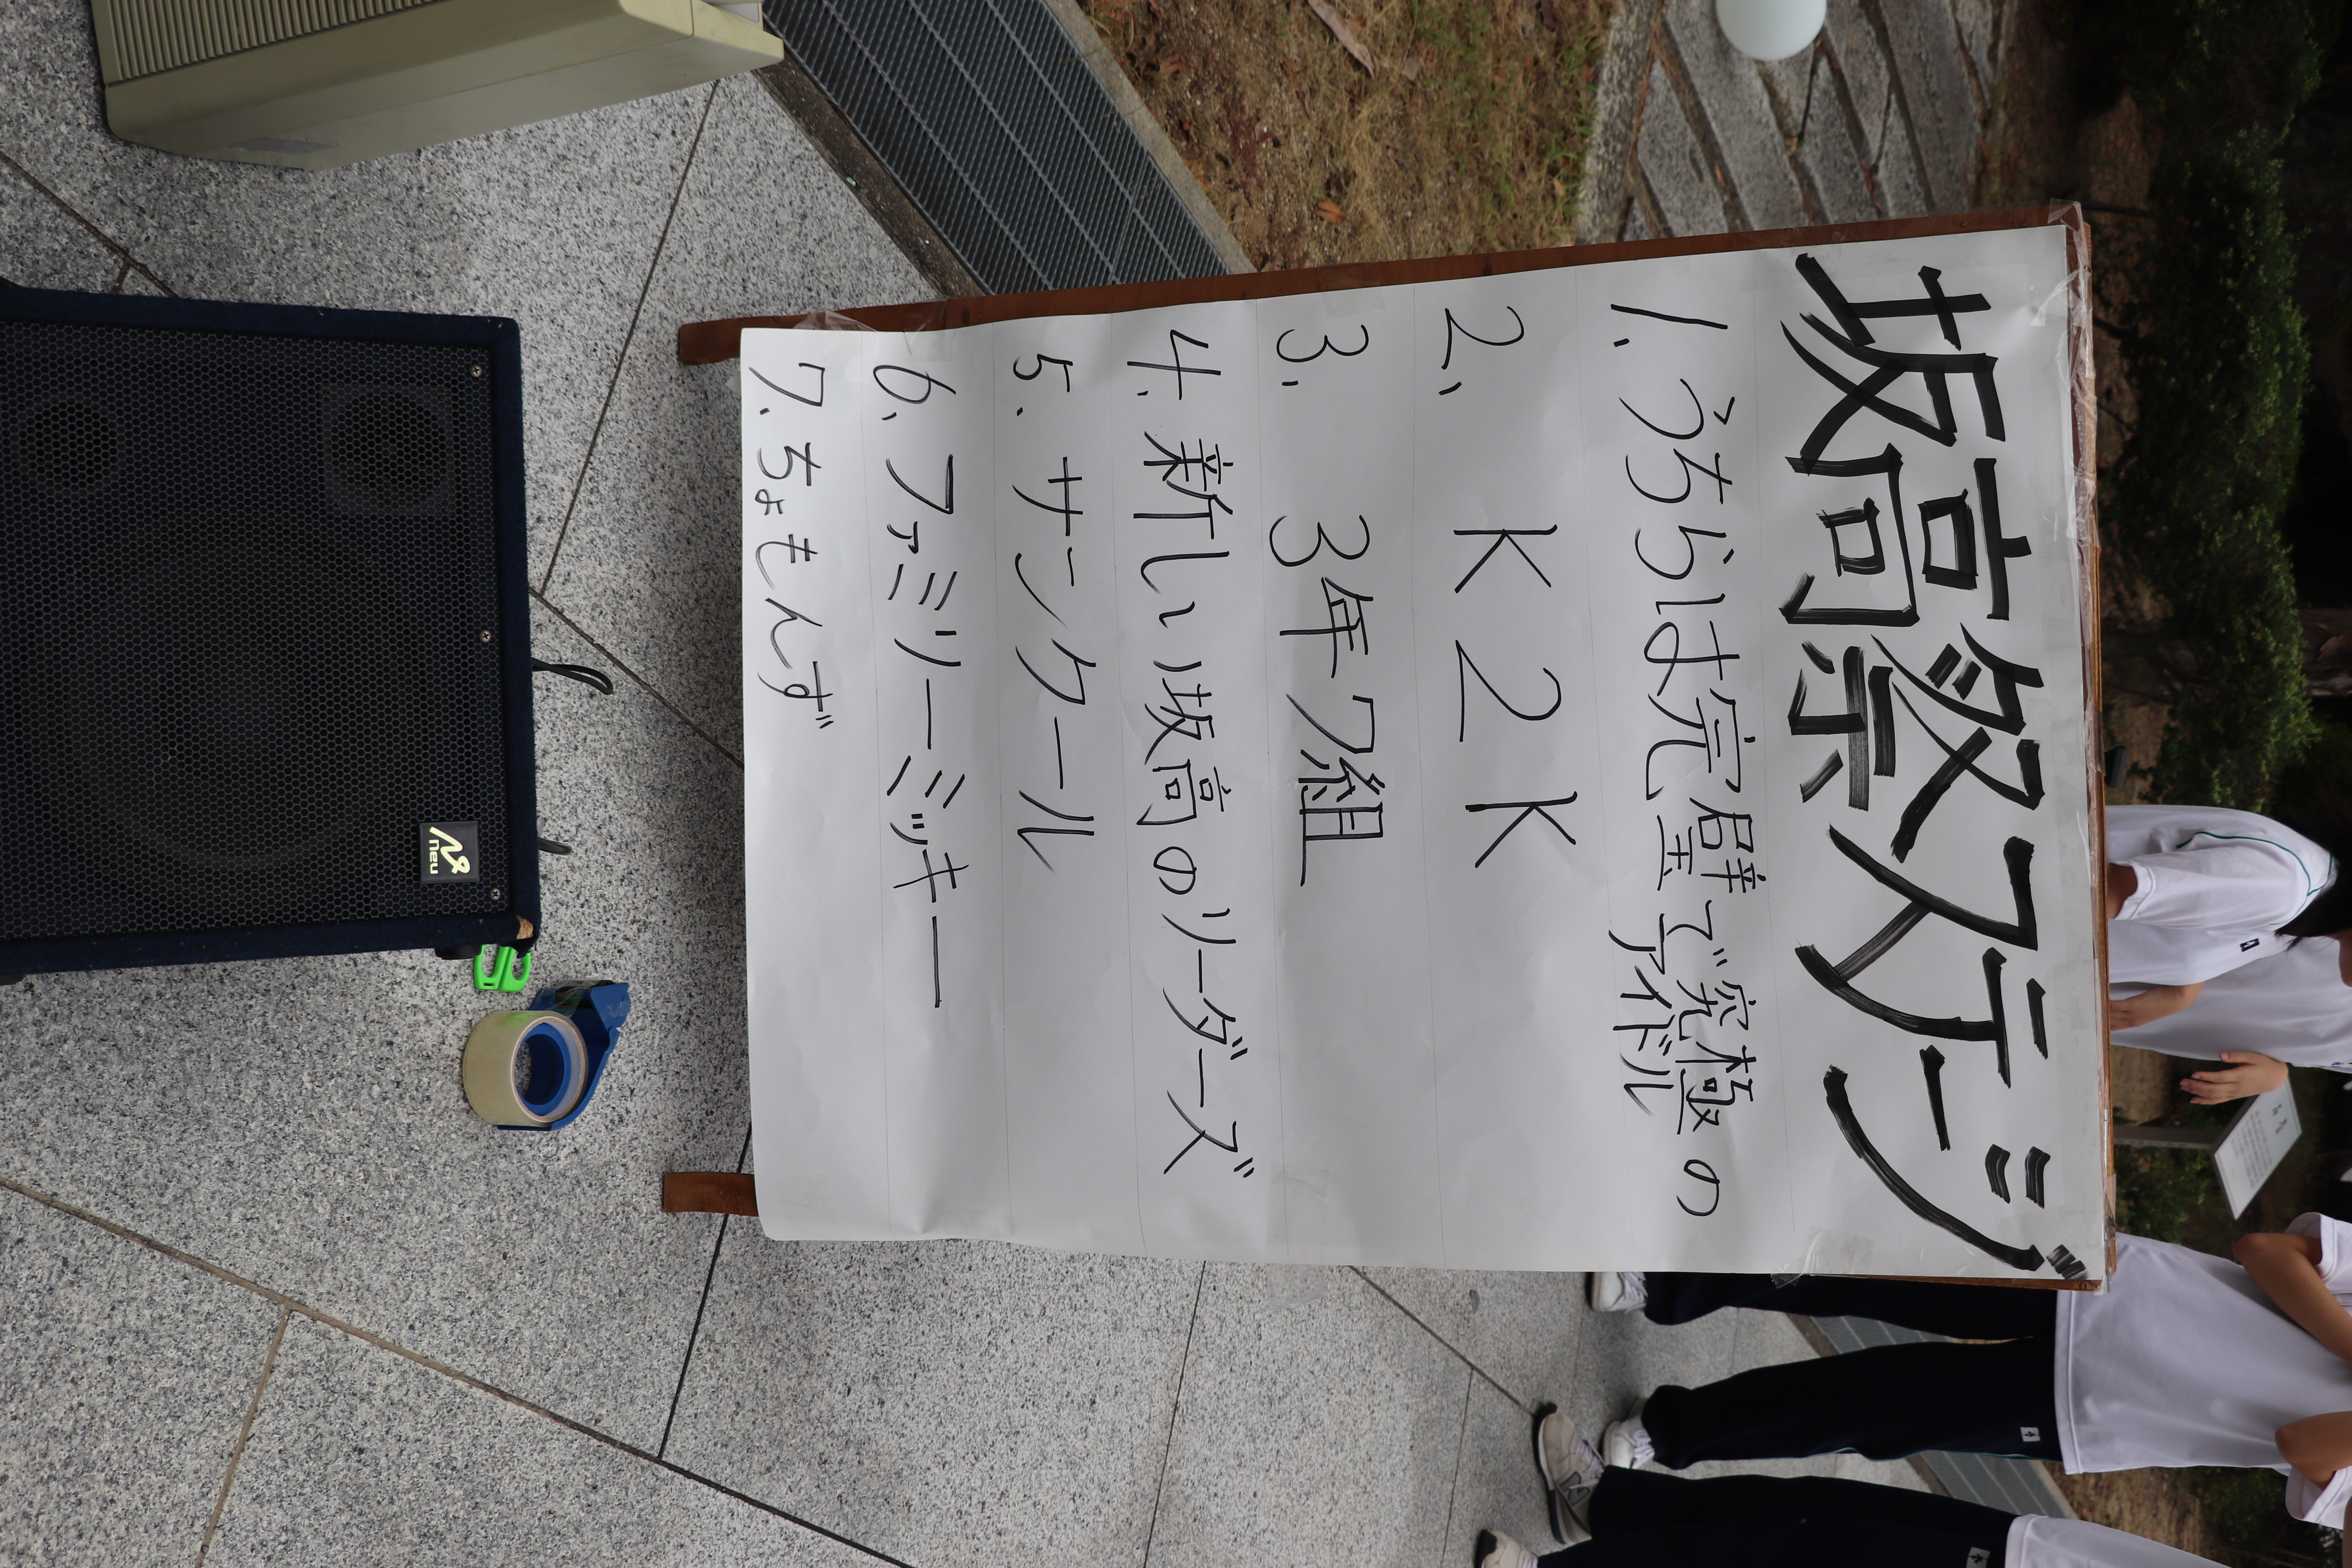 坂高祭ステージ
1. うちらは完璧で究極の
アイドル
2. K2K
3. 3年7組
4. 新しい坂高のリーダーズ
5. サンクール
6. ファミリーミッキー
7. ちょもんず
Neu